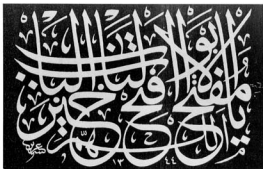 يا مفتح الابواب افتح لنا خير الباب
١٣٤٤